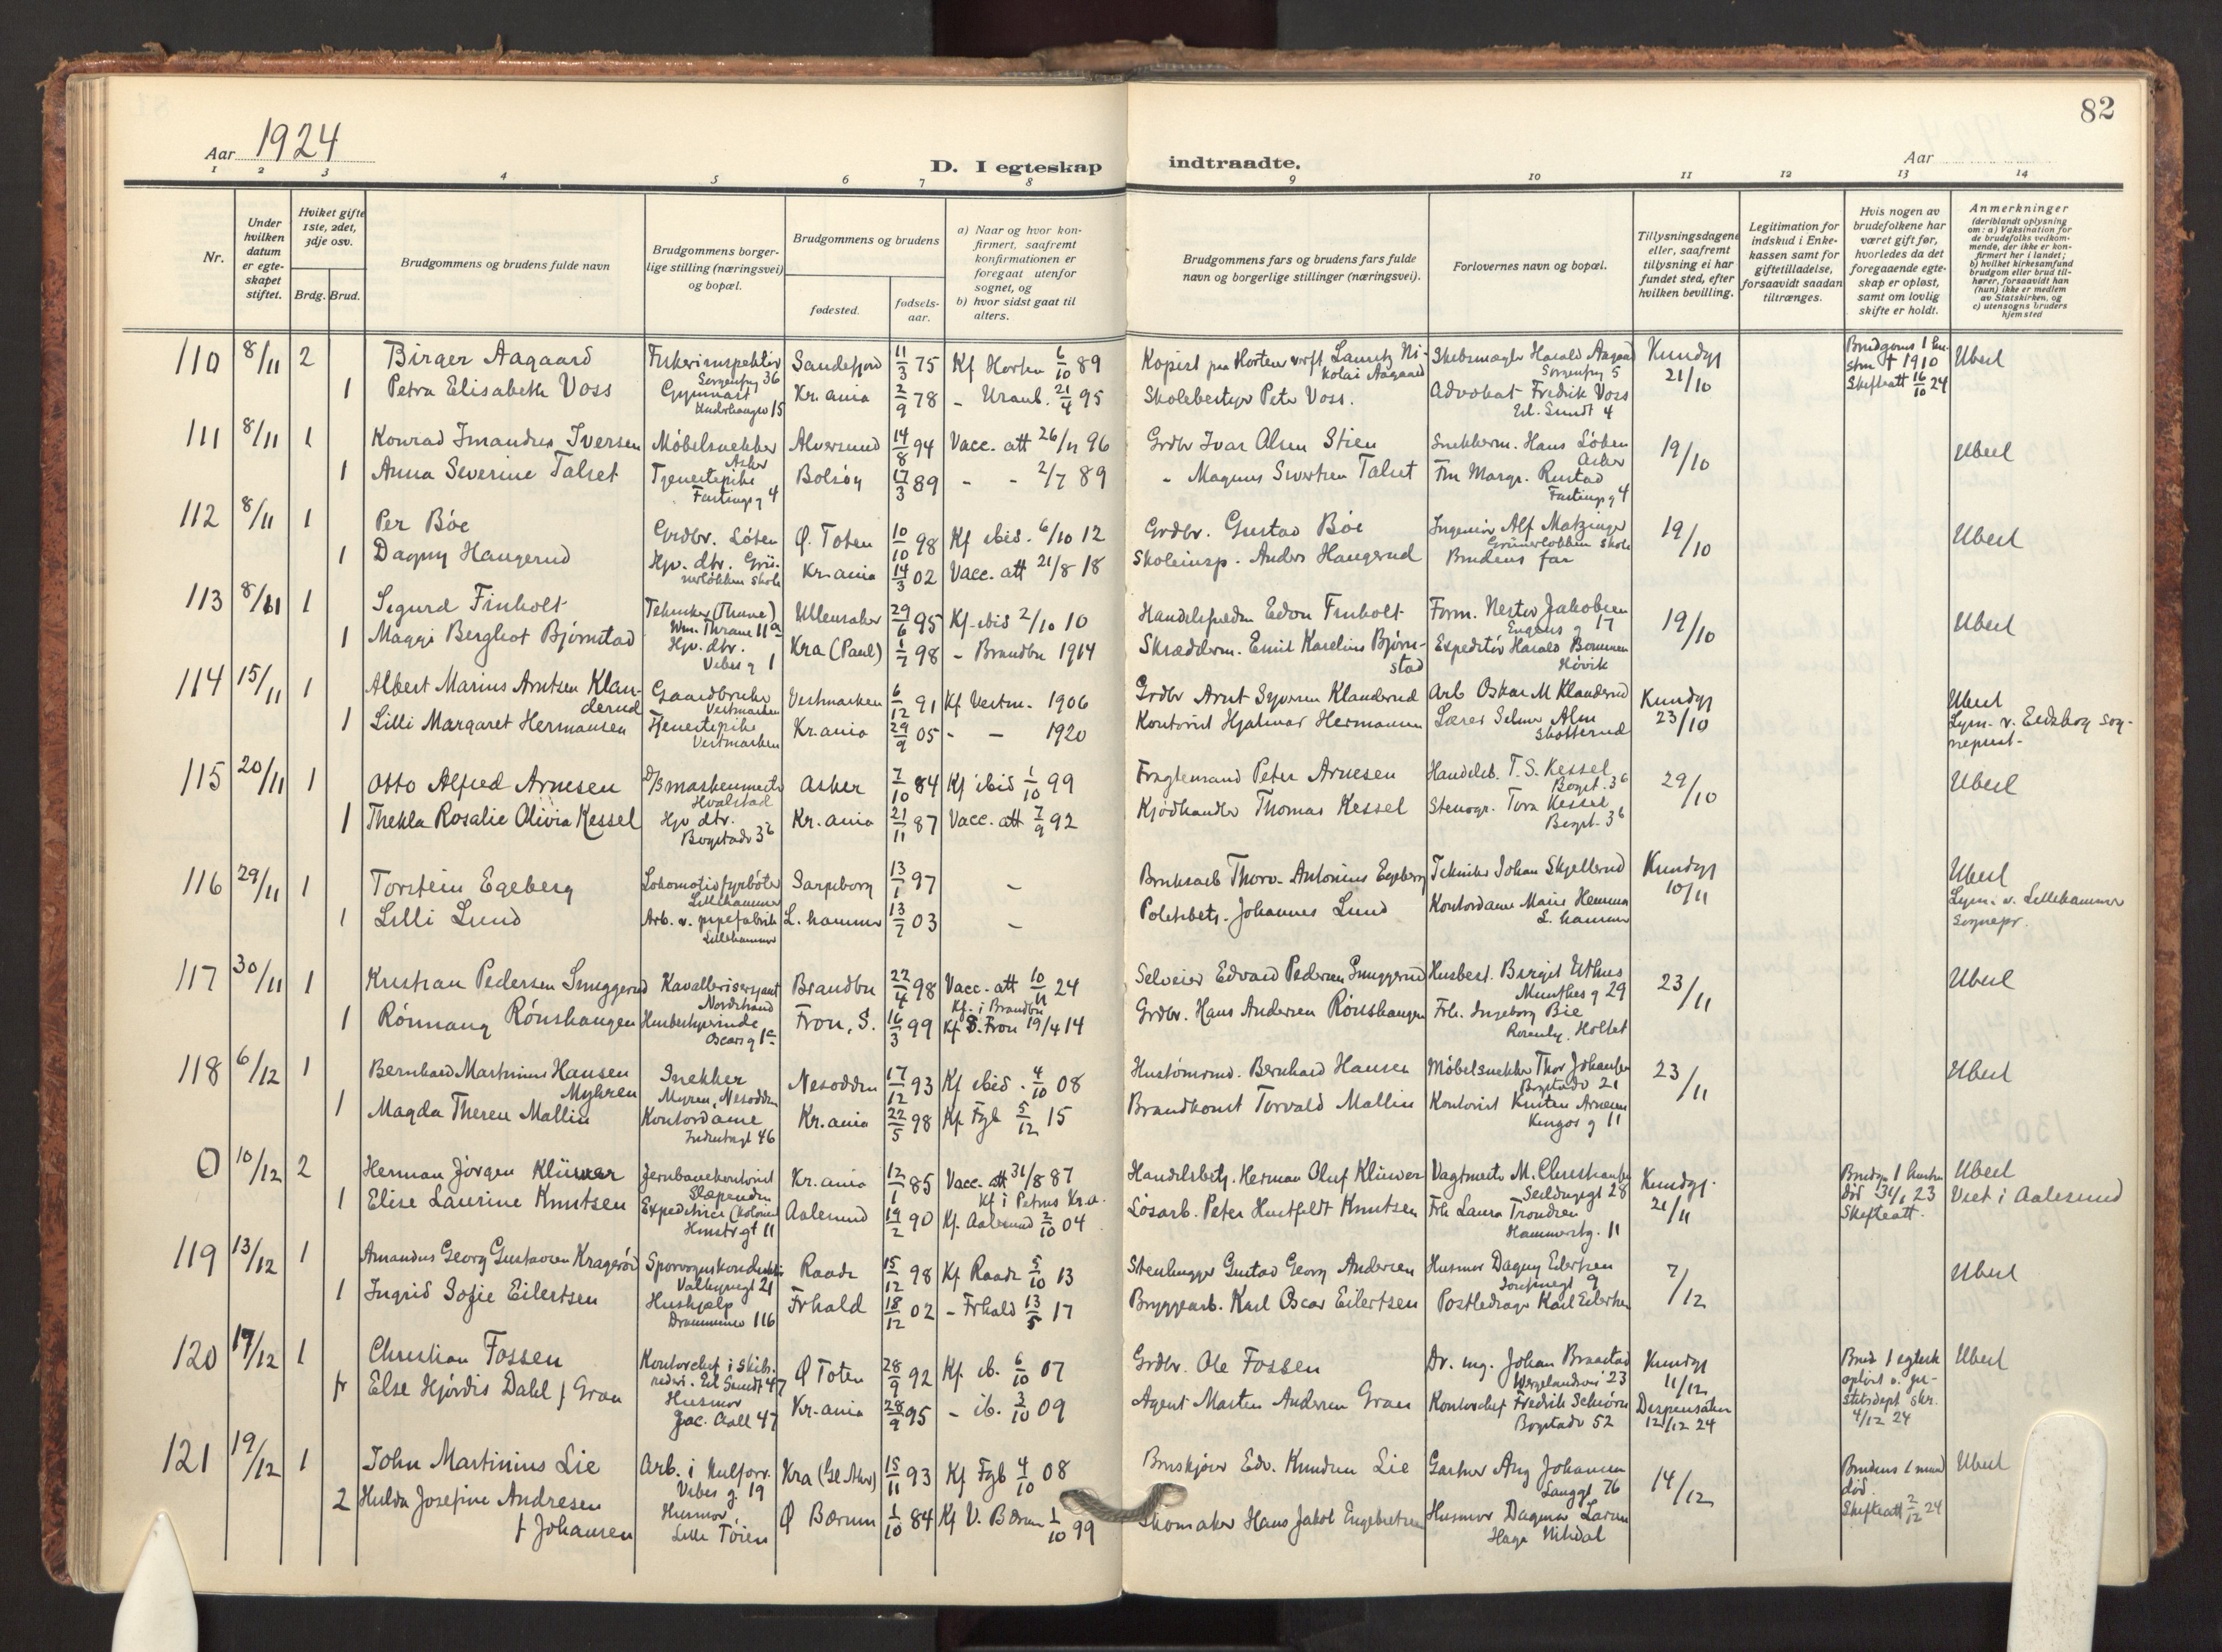 82
Aar 1924
D. I egteskap indtraadte.
Aar
1 2 3 4 5 6 7 8 9 10 11 12 13 14
Nr.
Under hvilken datum er egteskapet stiftet.
Hviket gifte 1ste, 2det, 3dje osv.
Brdg. Brud.
Brudgommens og brudens fulde navn
Brudgommens borgerlige stilling (næringsvei) og bopæl.
Brudgommens og brudens
fødested.
fødselsaar.
a) Naar og hvor konfirmert, saafremt konfirmationen er foregaat utenfor sognet, og
b) hvor sidst gaat til alters.
Brudgommens fars og brudens fars fulde navn og borgerlige stillinger (næringsvei).
Forlovernes navn og bopæl.
Tillysningsdagene eller, saafremt tillysning ei har fundet sted, efter hvilken bevilling.
Legitimation for indskud i Enkekassen samt for giftetilladelse, forsaavidt saadan tiltrænges.
Hvis nogen av brudefolkene har været gift før, hvorledes da det foregaaende egteskap er opløst, samt om lovlig skifte er holdt.
Anmerkninger
(deriblandt oplysning om: a) Vaksination for de brudefolks vedkommende, der ikke er konfirmert her i landet; b) hvilket kirkesamfund brudgom eller brud tilhører, forsaavidt han (hun) ikke er medlem av Statskirken, og c) utensogns bruders hjemsted
110 8/11 2 Birger Aagaard Fiskeriinspektør Sorgenfrig 36 Sandefjord 11/3 75 Kf Horten 6/10 89 Kopist paa Hortens verft Lauritz Nikolai Aagaard Skibsmægler Harald Aagaard Sorgenfrig 5 Kundgj 21/10 Brudgoms 1 hustru † 1910 Skifteatt 16/10 24 Ubesl
1 Petra Elisabeth Voss Gymnast 15 Kr.ania 2/9 78 - Uranb. 21/4 95 Skolebestyr Peter Voss. Advokat Fredrik Voss Eil. Sundt 4
111 8/11 1 Konrad Imandus Iversen Møbelsnekker Asker Alversund 14/8 94 Vacc. att 26/11 96 Grdbr Ivar Olsen Stien Snekkerm. Hans Løken Asker 19/10 Ubesl
1 Anna Severine Talset Tjenestepike Fastingsg 4 Bolsøy 17/3 89 - - 2/7 89 - Magnus Sivertsen Talset Fru Margr. Rustad Fastingsg 4
112 8/11 1 Per Bøe Grdbr. Løten Ø. Toten 10/10 98 Kf ibid. 6/10 12 Grdbr. Gustav Bøe Ingeniør Alf Matzinger Grünerløkken skole 19/10 Ubesl
1 Dagny Haugerud Hjv. dtr. Grünerløkken skole Kr.ania 14/3 02 Vacc. att 21/8 18 Skoleinsp. Anders Haugerud Brudens far
113 8/11 1 Sigurd Finholt Tekniker (Thune) Wm. Thrane 11a Ullensaker 29/6 95 Kf. ibid 2/10 10 Handelsfuldm Edon Finholt Form. Nestor Jakobsen Engens g 17 19/10 Ubesl
1 Maggi Bergliot Bjørnstad Hjv. dtr. Vibes g 1 Kra (Paul) 1/7 98 - Brandbu 1914 Skrædderm. Emil Karelius Bjørnstad Expeditør Harald Høvik
114 15/11 1 Albert Marius Arntsen Klanderud Gaardbruker Vestmarken Vestmarken 6/12 91 Kf Vestm. 1906 Grdbr Arnt Syversen Klanderud Arb Oskar M Klanderud Kundgj 23/10 Ubesl
1 Lilli Margaret Hermansen Tjenestepike Vestmarken Kr.ania 29/9 05 - - 1920 Kontorist Hjalmar Hermansen Lærer Selmer Alm Skotterud Lysn. v. Eidskog sognepræst.
115 20/11 1 Otto Alfred Arnesen D/B maskinmester Hvalstad Asker 7/10 84 Kf ibid 1/10 99 Fragtemand Peter Arnesen Handelsb. T. S. Kessel Bogst. 36 29/10 Ubesl
1 Thekla Rosalie Olivia Kessel Hjv dtr. Bogstadv 36 Kr.ania 21/11 87 Vacc. att 7/9 92 Kjødhandler Thomas Kessel Stenogr. Tora Kessel Bogst. 36
116 29/11 1 Torstein Egeberg Lokomotivfyrbøter Lillehammer Sarpsborg 13/1 97 - Bruksarb Thorv. Antonius Egeberg Tekniker Johan Skjellerud Kundgj 10/11 Ubesl
1 Lilli Lund Arb. v. pipefabrik Lillehammer L. hammer 13/7 03 - Politibetj. Johannes Lund Kontordame Marie Hemma L. hammer Lysn. v. Lillehammer Sognepr.
117 30/11 1 Kristian Pedersen Smuggerud Kavallerisersjant Nordstrand Brandbu 22/4 98 Vacc. att 10/11 24 Kf. i Brandbu Selveier Edvard Pedersen Smuggerud Husbest. Birgit Uthus Munthes g 29 23/11 Ubesl
1 Rønnaug Rønshaugen Husbestyrerinde Oscars g 1c Fron, S. 16/3 99 Kf S. Fron 19/4 14 Grdbr. Hans Andersen Rønshaugen Frk. Ingeborg Bie Rosenly, Holtet
118 6/12 1 Bernhard Martinius Hansen Myhren Snekker Myren, Nesodden Nesodden 17/12 93 Kf ibid. 4/10 08 Hustømrmd. Bernhard Hansen Møbelsnekker Thor Johansen Bogstadv 21 23/11 Ubesl
1 Magda Therese Mallin Kontordame Industrigt 46 Kr.ania 22/5 98 Kf. Fgb 5/12 15 Brandkonst Torvald Mallin Kontorist Kirsten Arnesen Kingos g 11
0 10/12 2 Herman Jørgen Klüwer Jernbanekontorist Slæpenden Kr.ania 12/1 85 Vacc. att 31/8 87 Kf i Petrus Kr.a. Handelsbetj. Herman Oluf Klüwer Vagtmester M. Christiansen Seilduksgt 28 Kundgj. 21/11 Brudgs 1 hustru død 23 Skifteatt. Ubesl
1 Elise Laurine Knutsen Expeditrice (kolonial 11 Aalesund 19/2 90 Kf. Aalesund 2/10 04 Løsarb. Peter Huitfeldt Knutsen Frk Laura Trondsen Hammerstg. 11 Viet i Aalesund
119 13/12 1 Amandus Georg Gustavsen Kragerød Sporvognskonduktør Valkyriegt 21 Raade 15/12 98 Kf Raade 5/10 13 Stenhugger Gustav Georg Andersen Husmor Dagny Eilertsen Josefinegt 9 7/12 Ubesl
1 Ingrid Sofie Eilertsen Hushjælp Drammensv 116 Frhald 18/12 02 - Frhald 13/5 17 Bryggearb. Karl Oscar Eilertsen Postledsager Karl Eilertsen
120 17/12 1 Christian Fossen Kontorchef i skibsrederi. Eil Sundt 47 Ø Toten 28/9 92 Kf. ib. 6/10 07 Grdbr. Ole Fossen Av. ing. Johan Braastad Wergelandsvei 23 Kundgj 11/12 Brud 1 egtesk opløst v. justitsdept skr. 4/12 24 Ubesl
fr Else Hjørdis Dahl f Gran Husmor Jac. Aall 47 Kr.ania 28/9 95 - ib. 3/10 09 Agent Morten Andersen Gran Kontorchef Fredrik Schiørn Bogstadv 52 Dispensation 12/12 24
121 19/12 1 John Martinius Lie Arb. i kulforr. Vibes g. 19 Kra (Gl Aker) 15/11 93 Kf Fgb 4/10 08 Edv. Knudsen Lie Gartner Aug Johansen Langgt 76 14/12 Brudens 1 mand død. Skifteatt 2/12 24 Ubesl
2 Hulda Josefine Andresen f Johansen Husmor, Lille Tøien Ø Bærum 1/10 84 Kf V. Bærum 1/10 99 Skomaker Hans Jakob Engebretsen Husmor Dagmar Larsen Nitedal